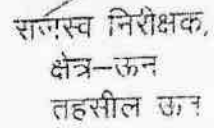 राजस्व निरीक्षक,
क्षेत्र–ऊन
तहसील ऊन